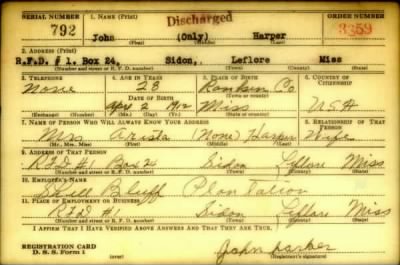 SERIAL NUMBER 1. NAME (Print) Discharged ORDER NUMBER
792 John (Only) Harper 3359
(First) (Middle) (Last)
2. ADDRESS (Print)
R.F.D. # 1. Box 24, Sidon, Leflore Miss
(Number and street or R. F. D. number) (Town) (County) (State)
3. TELEPHONE 4. AGE IN YEARS 5. PLACE OF BIRTH 6. COUNTRY OF CITIZENSHIP
None 28 Rankin Co
DATE OF BIRTH
Apr 2 1912 Miss USA
(Mo.) (Day) (Yr.) (State or country)
7. NAME OF PERSON WHO WILL ALWAYS KNOW YOUR ADDRESS 8. RELATIONSHIP OF THAT PERSON
Mrs (None) Harper Wife
(Mr., Mrs., Miss) (First) (Middle) (Last)
9. ADDRESS OF THAT PERSON
RFD #1 Box 2 Sidon Leflore Miss
(Number and street or R. F. D. number) (Town) (County) (State)
10. EMPLOYER'S NAME
Bluff Plantation
11. PLACE OF EMPLOYMENT OR BUSINESS
RFD #1 Sidon Leflore Miss
(Number and street or R. F. D. number) (Town) (County) (State)
I AFFIRM THAT I HAVE VERIFIED ABOVE ANSWERS AND THAT THEY ARE TRUE.
REGISTRATION CARD
D. S. S. Form 1 John harper
(Registrant's signature)